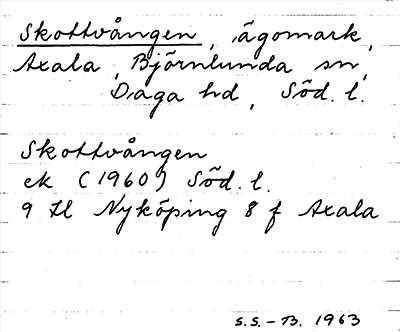 Skottvången, ägomark,
Axala, Björnlunda sn,
Daga hd, Söd. l.
Skottvången
ek (1960) Söd. l.
9 H Nyköping 8 f Axala
S.S.-B. 1963